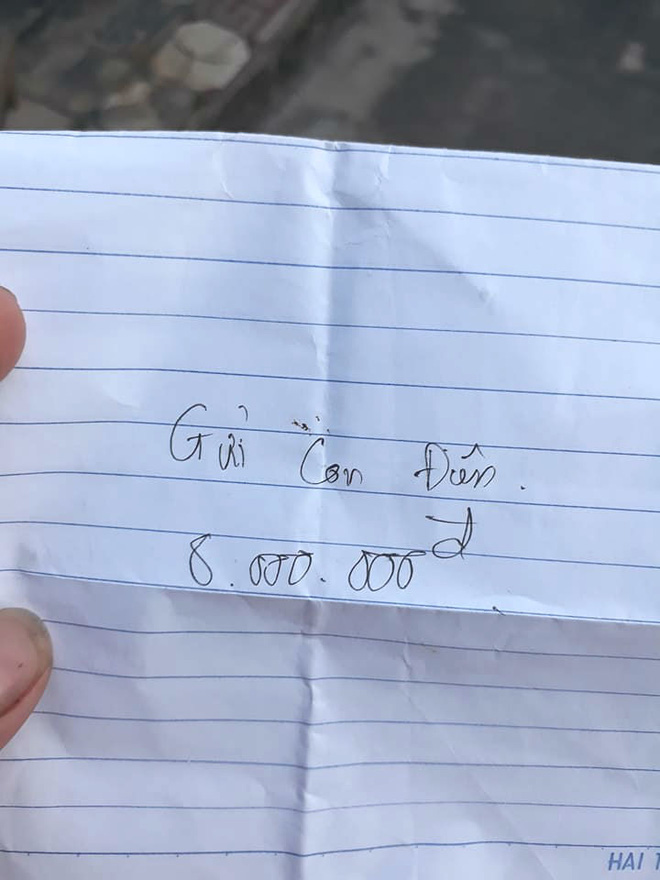 Gửi Con Điên.
8.000.000đ
HAI T